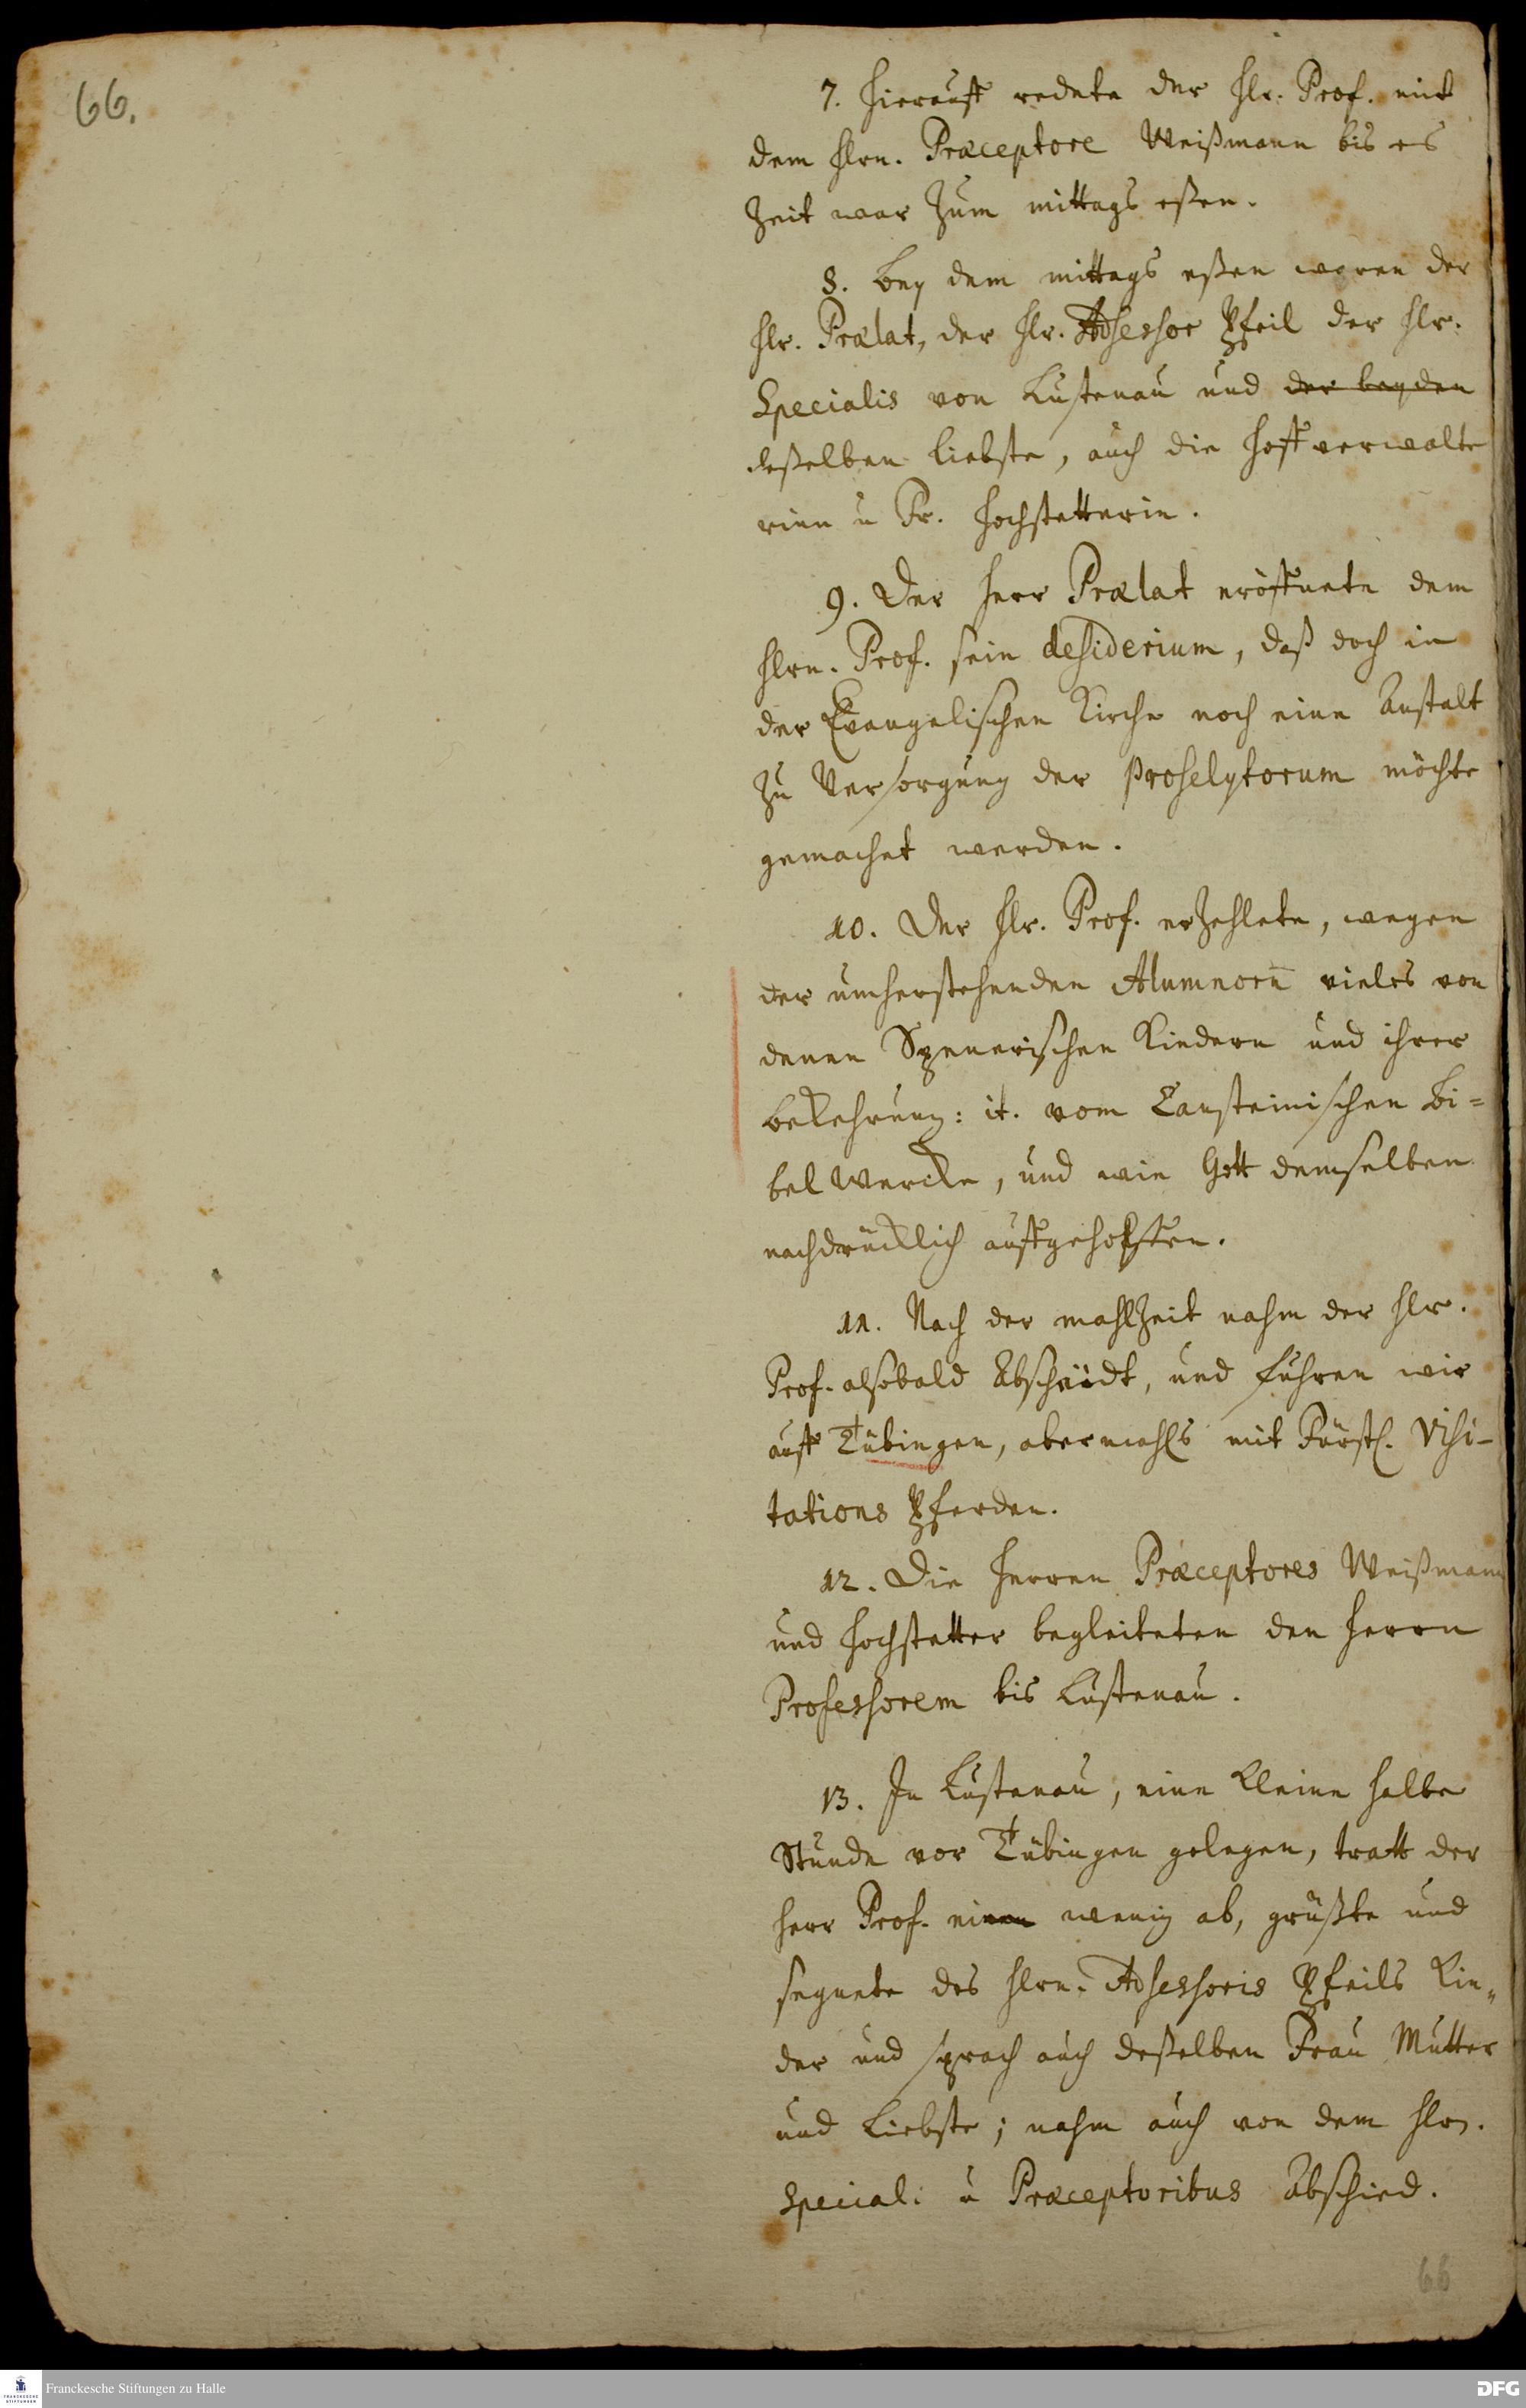 66.
7. Hierauff redete der Hr. Prof. mit
dem Hrn. Præceptore Weißmann bis es
Zeit war zum mittags eßen.
8. Bey dem mittags eßen waren der
Hr. Prælat, der Hr. Adsessor Pfeil der Hr.
Specialis von Lustenau und der beyden
deßelben Liebste, auch die Hoffverwalte
rinn u Fr. Hochstetterin.
9. Der Herr Prælat eröffnete dem
Hrn. Prof. sein desiderium, daß doch in
der Evangelischen Kirche noch eine Anstalt
zu Versorgung der Proselytorum möchte
gemachet werden.
10. Der Hr. Prof. erzehlete, wegen
der umherstehenden Alumnorū vieles von
denen Spenerischen Kindern und ihrer
bekehrung: it. vom Cansteinischen Bi=
bel Wercke, und wie Gott demselben
nachdrücklich auffgeholffen.
11. Nach der mahlzeit nahm der Hr.
Prof. alsobald Abscheidt, und fuhren wir
auff Tübingen, abermahls mit Fürstl. Visi-
tations Pferden.
12. Die Herren Præceptores Weißmann
und Hochstetter begleiteten den Herrn
Professorem bis Lustenau.
13. In Lustenau, eine kleine halbe
Stunde vor Tübingen gelegen, tratt der
Herr Prof. einen wenig ab, grüßte und
segnete des Hrn. Adsessoris Pfeils Kin„
der und sprach auch deßelben Frau Mutter
und Liebste; nahm auch von dem Hrn.
Speciali u Præceptoribus Abschied.
66
Franckesche Stiftungen zu Halle
DFG